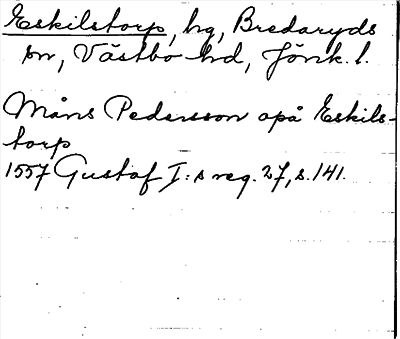 Eskilstorp, hg, Bredaryds
sn, Västbo hd, Jönk. l.
Måns Pedersson opå Eskils-
torp
1557 Gustaf I:s reg. 27, s. 141.